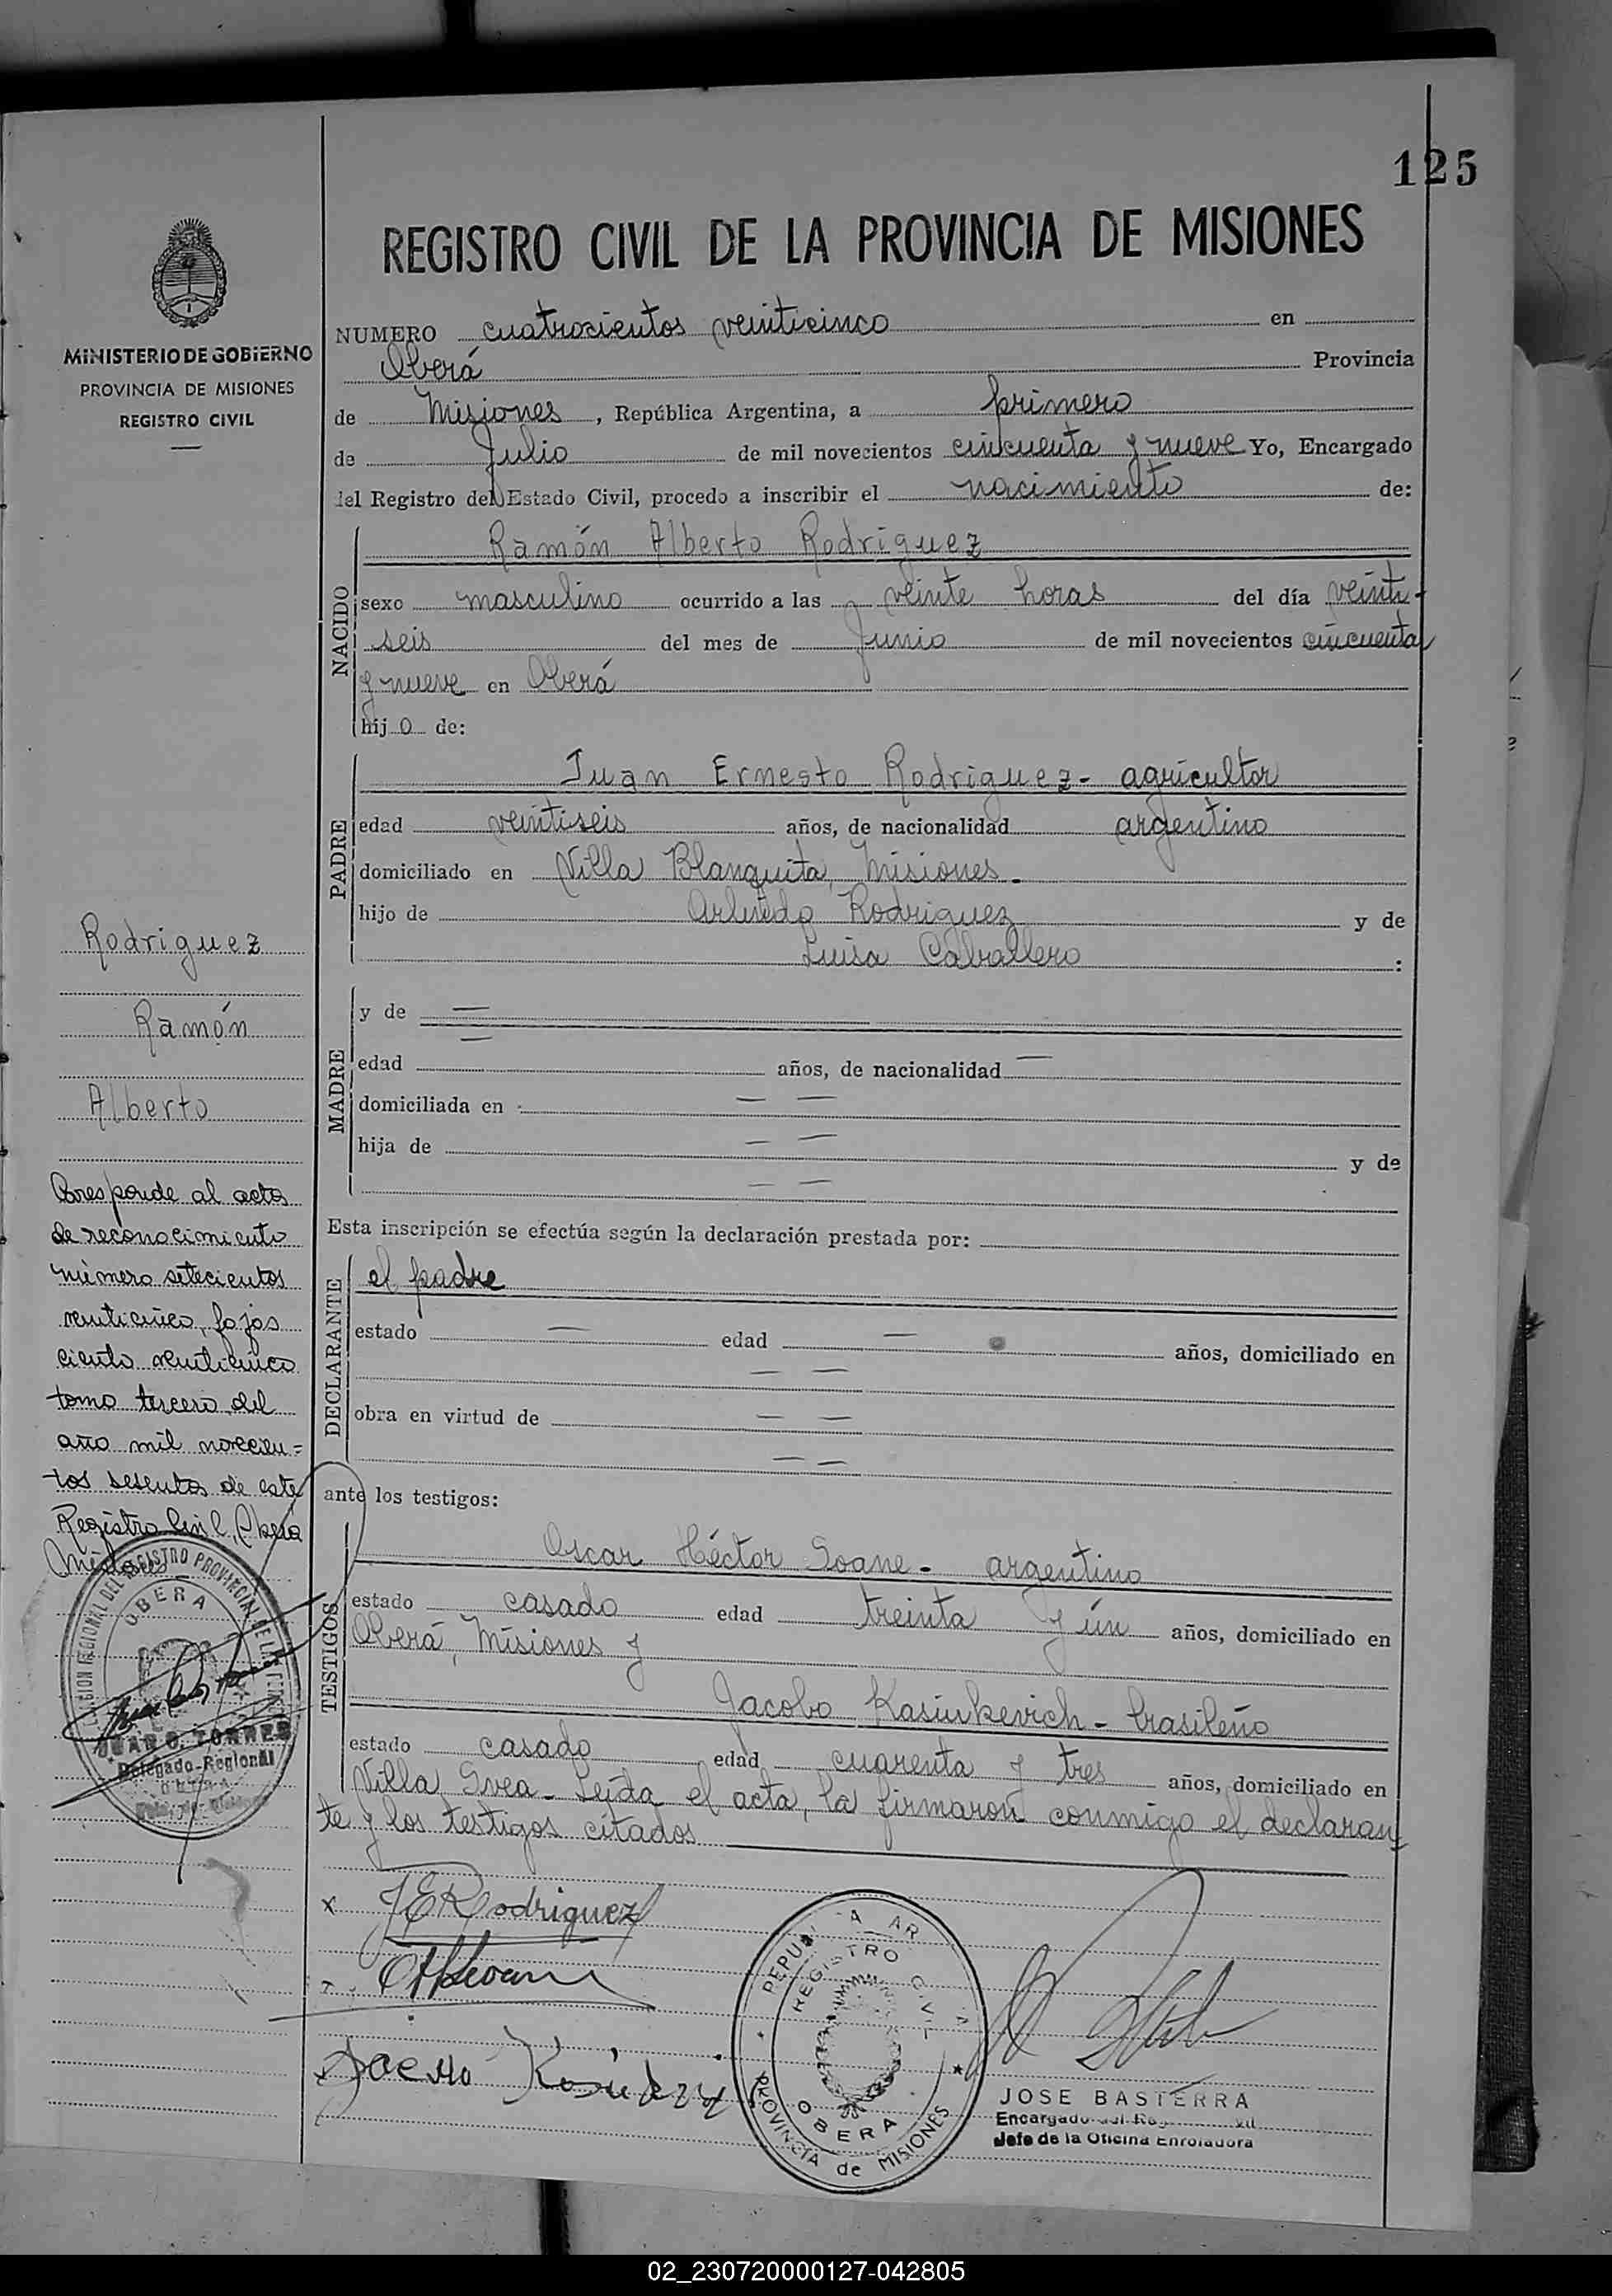 125
REGISTRO CIVIL DE LA PROVINCIA DE MISIONES
MINISTERIO DE GOBIERNO
PROVINCIA DE MISIONES
REGISTRO CIVIL
NUMERO cuatrocientos veinticinco en
Oberá Provincia
de Misiones, República Argentina, a primero
de Julio de mil novecientos cincuenta y nueve Yo, Encargado
del Registro del Estado Civil, procedo a inscribir el nacimiento de:
NACIDO
Ramón Alberto Rodriguez
sexo masculino ocurrido a las veinte horas del día veinti-
seis del mes de Junio de mil novecientos cincuenta
y nueve en Oberá
hijo de:
PADRE
Juan Ernesto Rodriguez - agricultor
edad veintiseis años, de nacionalidad argentino
domiciliado en Villa Blanquita, Misiones.
hijo de Arlindo Rodriguez y de
Luisa Caballero :
MADRE
y de —
edad — años, de nacionalidad —
domiciliada en — —
hija de — — y de
— —
Esta inscripción se efectúa según la declaración prestada por:
DECLARANTE
el padre
estado — edad — años, domiciliado en
— —
obra en virtud de — —
— —
ante los testigos:
TESTIGOS
Oscar Héctor Soane - argentino
estado casado edad treinta y ún años, domiciliado en
Oberá, Misiones y
Jacobo Kasiukevich - brasileño
estado casado edad cuarenta y tres años, domiciliado en
Villa Svea - Leída el acta, la firmaron conmigo el declaran
te y los testigos citados
Rodriguez
Ramón
Alberto
Corresponde al acta
de reconocimiento
número setecientos
veinticinco, fojas
ciento veinticinco
tomo tercero del
año mil novecien=
tos sesenta de este
Registro Civil, Oberá
Misiones
REGIONAL DEL REGISTRO PROVINCIAL DE LAS
OBERA
JUAN O. TORRES
Delegado Regional
OBERA
x JERodriguez
REPUBLICA AR
REGISTRO CIVIL
OBERA
PROVINCIA de MISIONES
JOSE BASTERRA
Encargado del Re
Jefe de la Oficina Enroladora
02_230720000127-042805